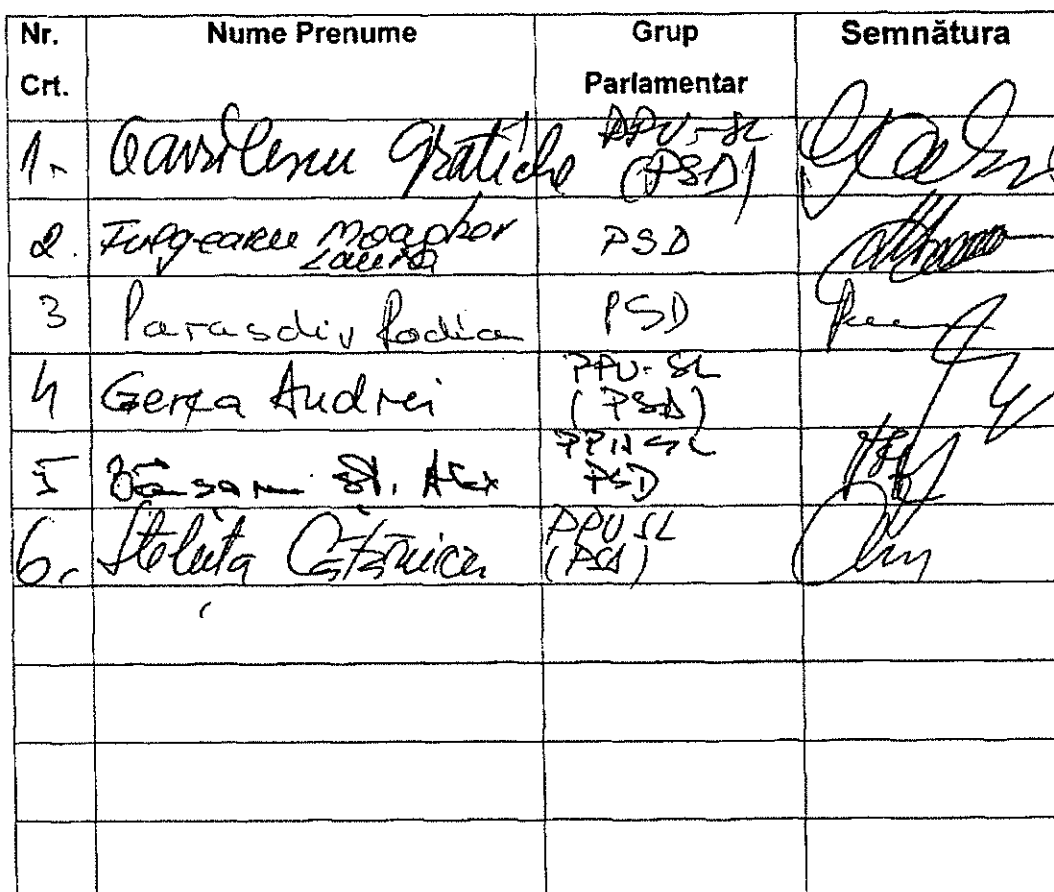 Nr. Crt. Nume Prenume Grup Parlamentar Semnătura
1. Gavrilescu Grațiela PPU-SL (PSD)
2. Fulgeanu Moagher Laura PSD
3 Paraschiv Rodica PSD
4 Gerea Andrei PPU-SL (PSD)
5 Băișanu Șt. Alex PPU SL PSD
6. Steluța Cătăniciu PPUSL (PSD)